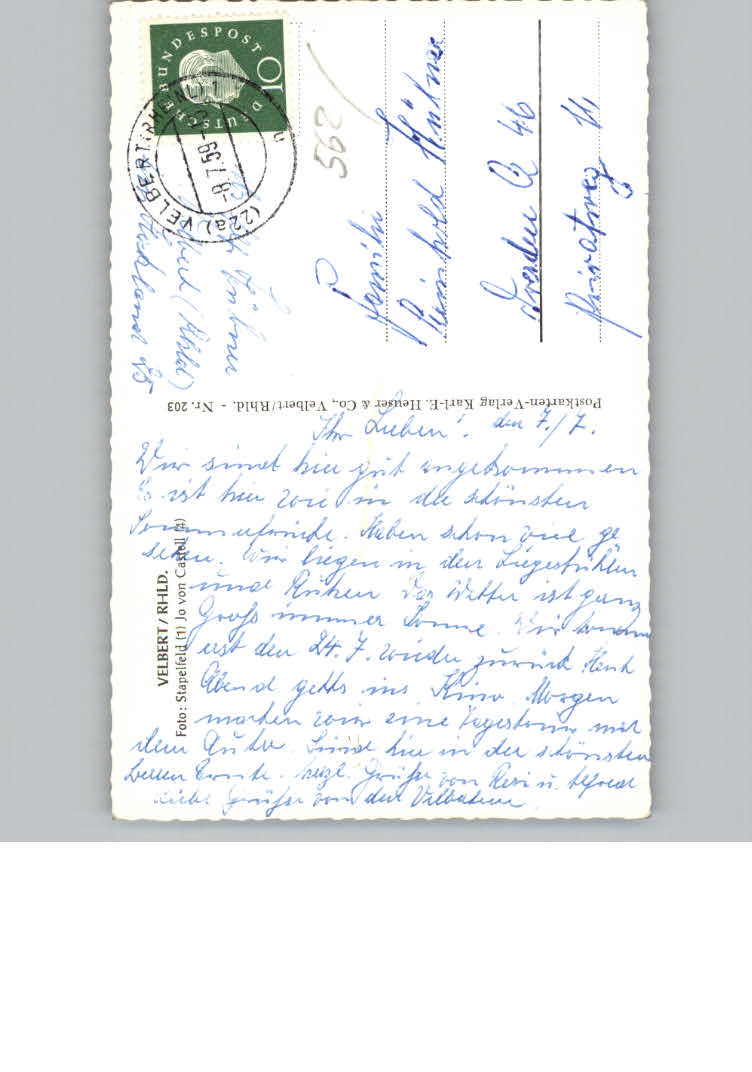 DEUTSCHE BUNDESPOST
10
(22a) VELBERT (RHEINL) 1
-8.7.59
u
568
Velbert (Rhld)
Familie
Reinhold Hübner
Dresden A 46
Privatweg 11
Postkarten-Verlag Karl-E. Heuser & Co., Velbert/Rhld. - Nr. 203
VELBERT / RHLD.
Foto: Stapelfeld (1) Jo von Castell (4)
Ihr Lieben! den 7./7.
Wir sind hier gut angekommen
Es ist hier wie in der schönsten
Sommerfrische. Haben schon viel ge
sehen. Wir liegen in den Liegestühlen
und Ruhen Das Wetter ist ganz
Groß immer Sonne. Wir kommen
erst den 24.7. wieder zurück Heut
Abend gehts ins Kino. Morgen
machen wir eine Tagestour mit
dem Auto. Sind hier in der schönsten
Beeren Ernte. herzl. Grüße von Resi u. Alfred
Liebe Grüße von den